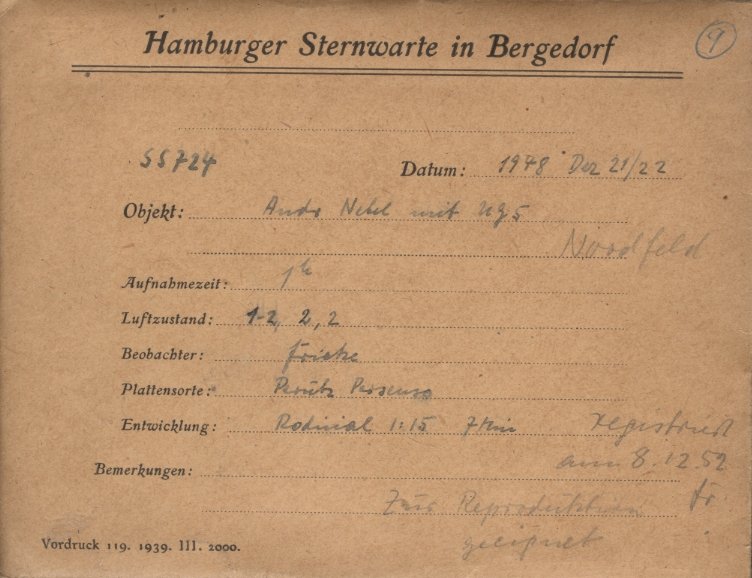 9
Hamburger Sternwarte in Bergedorf
SS724 Datum: 1948 Dez 21/22
Objekt: Andr Nebel mit UG5
Nordfeld
Aufnahmezeit: 1h
Luftzustand: 1-2, 2, 2
Beobachter: Fricke
Plattensorte: Perutz Persenso
Entwicklung: Rodinal 1:15 7Min registriert
am 8.12.52
Bemerkungen:
Fr.
Zur Reproduktion
geeignet
Vordruck 119. 1939. III. 2000.